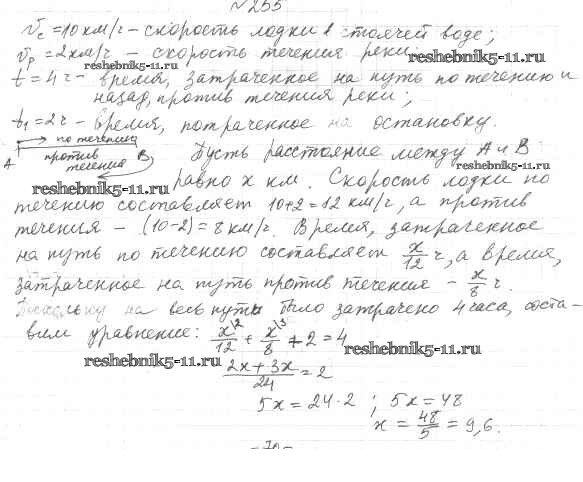 №255
Vc = 10 км/г – скорость лодки в стоячей воде;
Vp = 2 км/г – скорость течения реки;
reshebnik5-11.ru
reshebnik5-11.ru
t = 4 г – время, затраченное на путь по течению и
назад, против течения реки;
t1 = 2 г – время, потраченное на остановку.
по течению
А
против
течения
В
Пусть расстояние между А и В
reshebnik5-11.ru
reshebnik5-11.ru
равно х км. Скорость лодки по
течению составляет 10+2=12 км/г, а против
течения – (10-2)=8 км/г. Время, затраченное
на путь по течению составляет x/12 г, а время,
затраченное на путь против течения – x/8 г.
Поскольку на весь путь было затрачено 4 часа, соста-
вим уравнение: x\2/12 + x\3/8 + 2 = 4
reshebnik5-11.ru
reshebnik5-11.ru
(2x + 3x)/24 = 2
5x = 24·2 ; 5x = 48
x = 48/5 = 9,6.